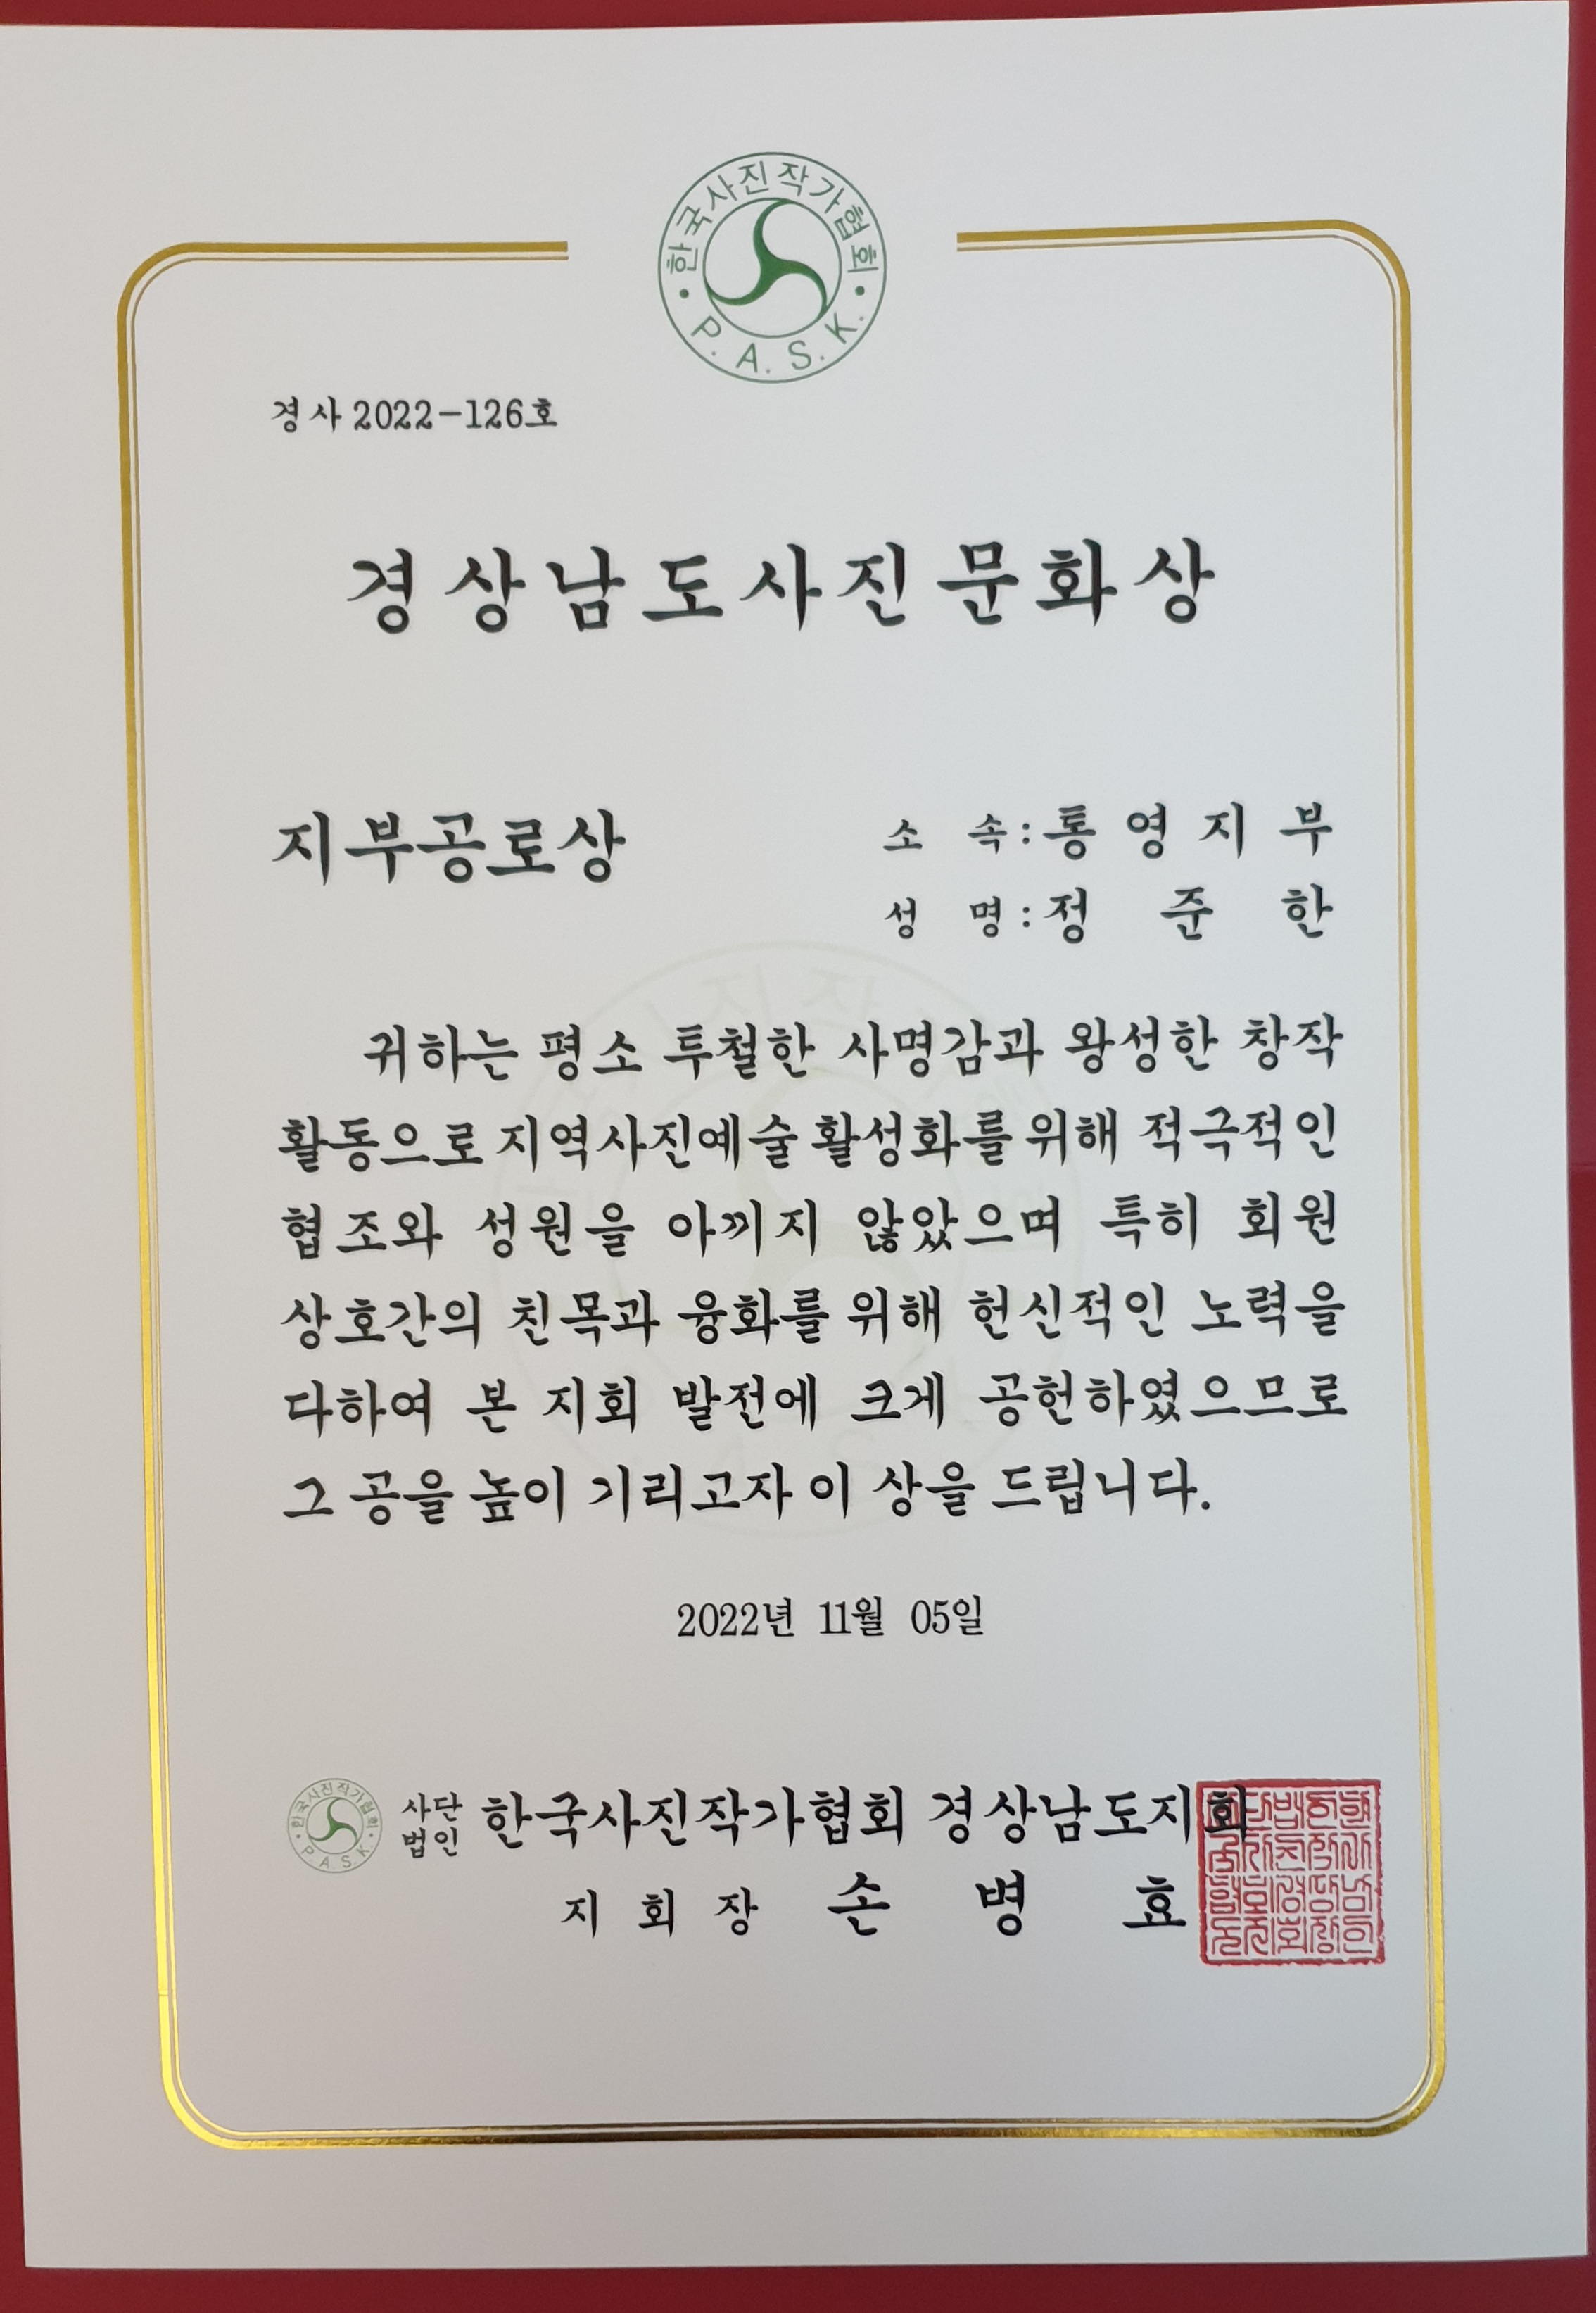 한국사진작가협회
P.A.S.K.
경사 2022-126호
경상남도사진문화상
지부공로상
소 속 : 통영지부
성 명 : 정 준 한
귀하는 평소 투철한 사명감과 왕성한 창작
활동으로 지역사진예술 활성화를 위해 적극적인
협조와 성원을 아끼지 않았으며 특히 회원
상호간의 친목과 융화를 위해 헌신적인 노력을
다하여 본 지회 발전에 크게 공헌하였으므로
그 공을 높이 기리고자 이 상을 드립니다.
2022년 11월 05일
한국사진작가협회
P.A.S.K
사단법인 한국사진작가협회 경상남도지회
지 회 장 손 병 효